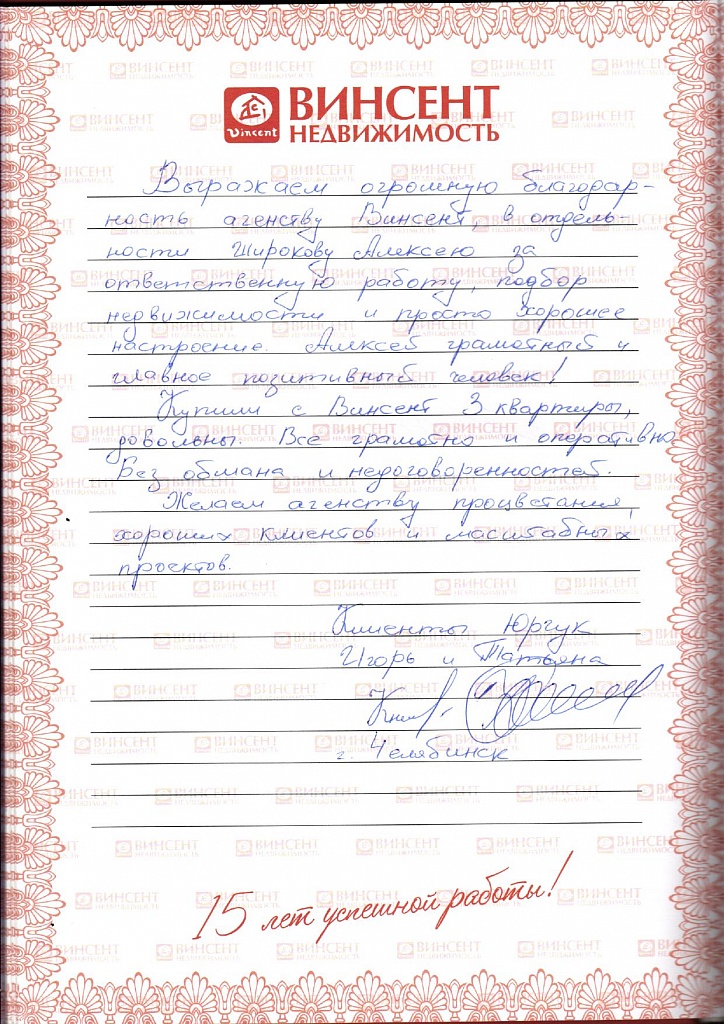 ВИНСЕНТ
Vincent
НЕДВИЖИМОСТЬ
Выражаем огромную благодар-
ность агенству Винсент, в отдель-
ности Широкову Алексею за
ответственную работу, подбор
недвижимости и просто хорошее
настроение. Алексей грамотный и
главное позитивный человек!
Купили с Винсент 3 квартиры,
довольны. Все грамотно и оперативно
Без обмана и недоговоренностей.
Желаем агенству процветания,
хороших клиентов и масштабных
проектов.
Клиенты Юргук
Игорь и Татьяна
г. Челябинск
15 лет успешной работы!